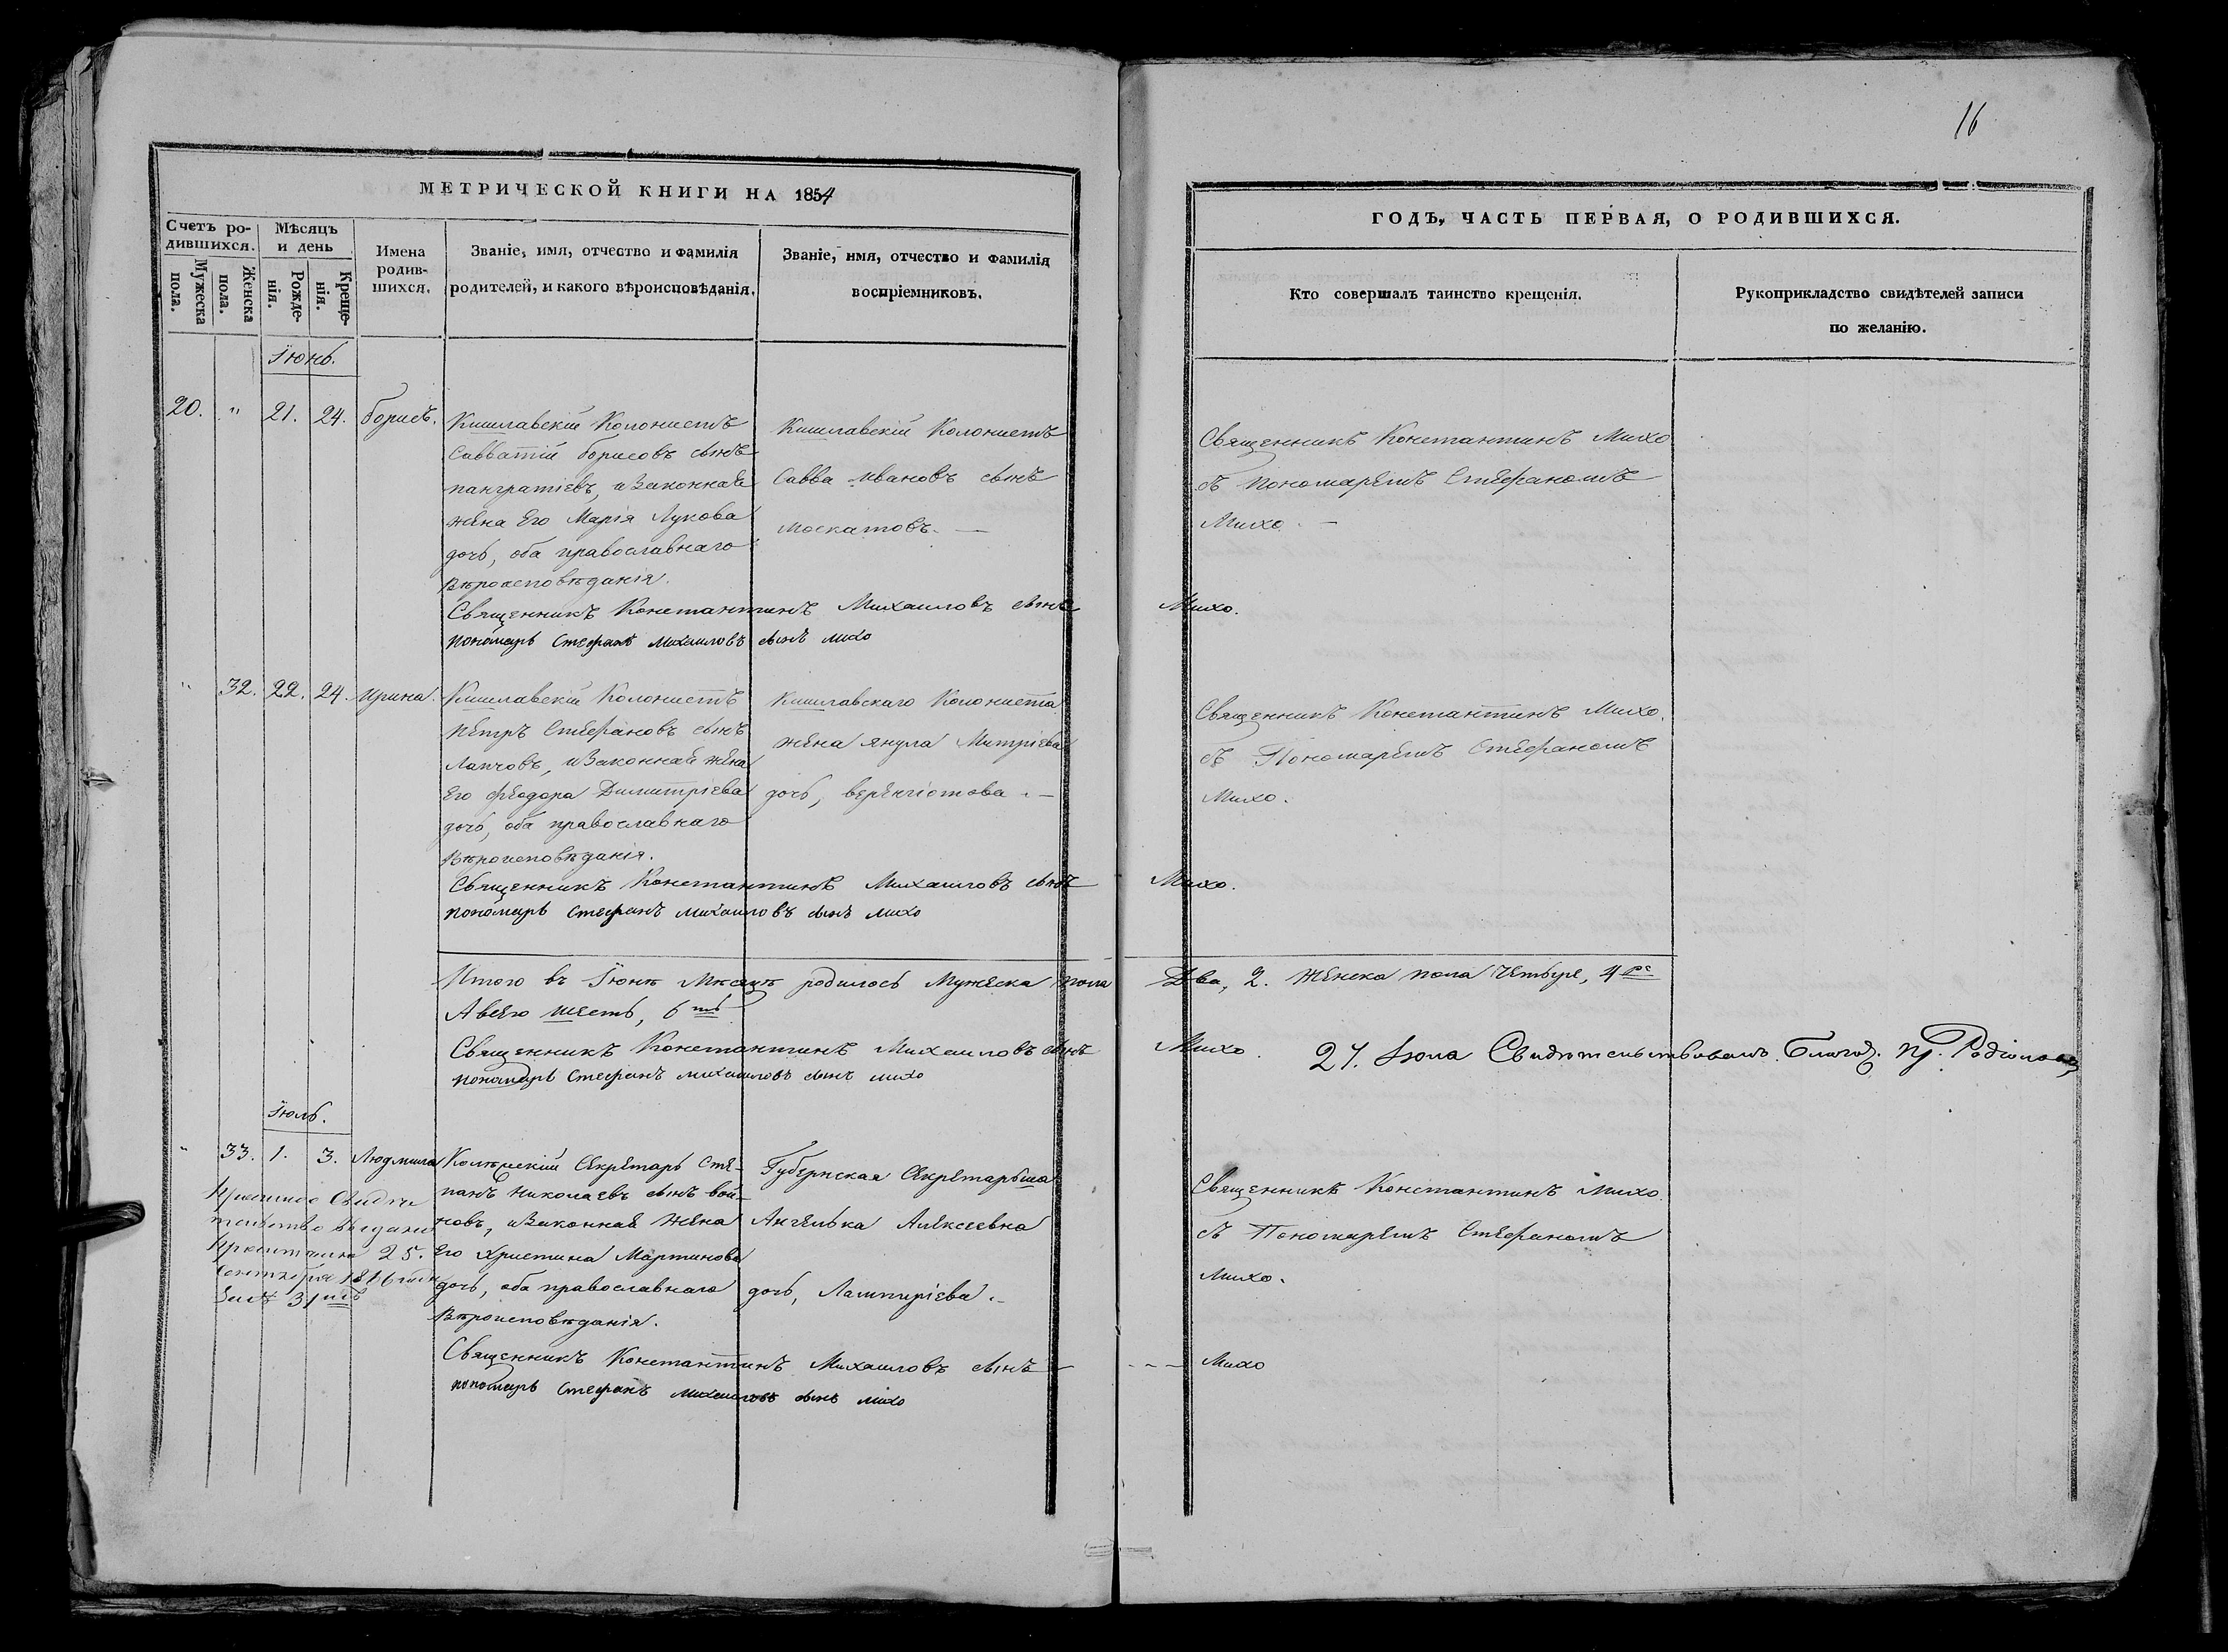 16
МЕТРИЧЕСКОЙ КНИГИ НА 1854
ГОДЪ, ЧАСТЬ ПЕРВАЯ, О РОДИВШИХСЯ.
Счетъ ро-
дившихся.
Мужеска
пола.
Женска
пола.
Мѣсяцъ
и день
Рожде-
нія.
Креще-
нія.
Имена
родив-
шихся.
Званіе, имя, отчество и фамилія
родителей, и какого вѣроисповѣданія.
Званіе, имя, отчество и фамилія
воспріемниковъ.
Кто совершалъ таинство крещенія.
Рукоприкладство свидѣтелей записи
по желанію.
Іюнь.
20. " 21. 24. Борисъ.
Кишлавскій Колонистъ
Савватій Борисовъ сынъ
пангратіевъ, и Законная
жена Его Марія Лукова
дочь, оба православнаго
вѣроисповѣданія.
Кишлавскій Колонистъ
Савва Ивановъ сынъ
москатовъ. —
Священникъ Константинъ Михо
съ Пономаремъ Стефаномъ
Михо. —
Священникъ Константинъ Михаиловъ сынъ Михо.
пономарь Стефанъ Михаиловъ сынъ михо
" 32. 22. 24. Ирина.
Кишлавскій Колонистъ
Петръ Стефановъ сынъ
Лапчовъ, и Законная жена
Его Феодора Димитріева
дочь, оба православнаго
вѣроисповѣданія.
Кишлавскаго Колониста
жена янула Митріева
дочь, веренчіотова. —
Священникъ Константинъ Михо.
съ Пономаремъ Стефаномъ
Михо.
Священникъ Константинъ Михаиловъ сынъ Михо.
пономарь Стефанъ михаиловъ сынъ михо
Итого въ Іюнѣ Мѣсяцѣ родилось Мужеска пола Два, 2. Женска пола Четыре, 4 ре
А всего шесть, 6 ть
Священникъ Константинъ Михаиловъ сынъ Михо.
пономарь Стефанъ михаиловъ сынъ михо
Іюля Свидѣтельствовалъ Благоч. пр.
Іюль.
" 33. 1. 3. Людмила
Колежскій Секретарь Сте-
панъ Николаевъ сынъ вой-
новъ, и Законная Жена
Его Христина Мартинова
дочь, оба православнаго
вѣроисповѣданія.
Губернская Секретарьша
Ангелька Алексеевна
дочь, Лампиріева. —
Священникъ Константинъ Михо.
съ Пономаремъ Стефаномъ
Михо.
свидѣ
тельство выдано
25.
Сентября
31
Священникъ Константинъ Михаиловъ сынъ — — — Михо
пономарь Стефанъ Михаиловъ сынъ михо